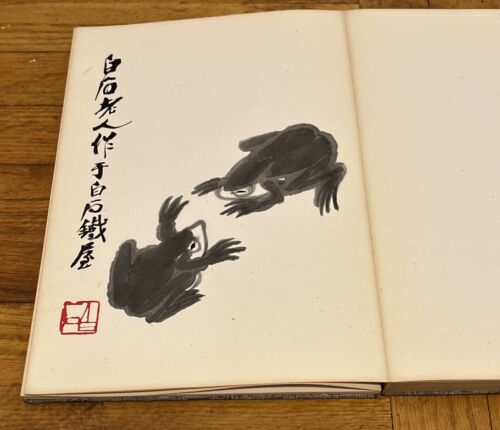 白石老人作于白石鐵屋